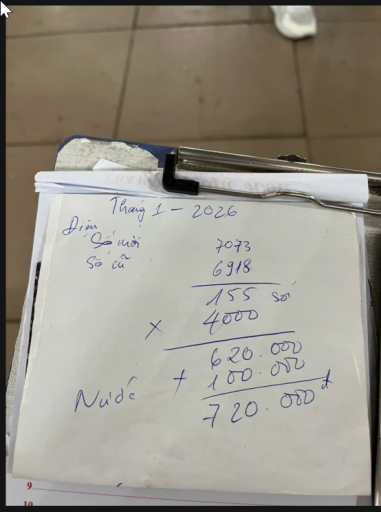 Tháng 1 - 2026
Điện
Số mới 7073
Số cũ 6918
155 số
x 4000
620.000
Nước + 100.000
720.000đ
9
10